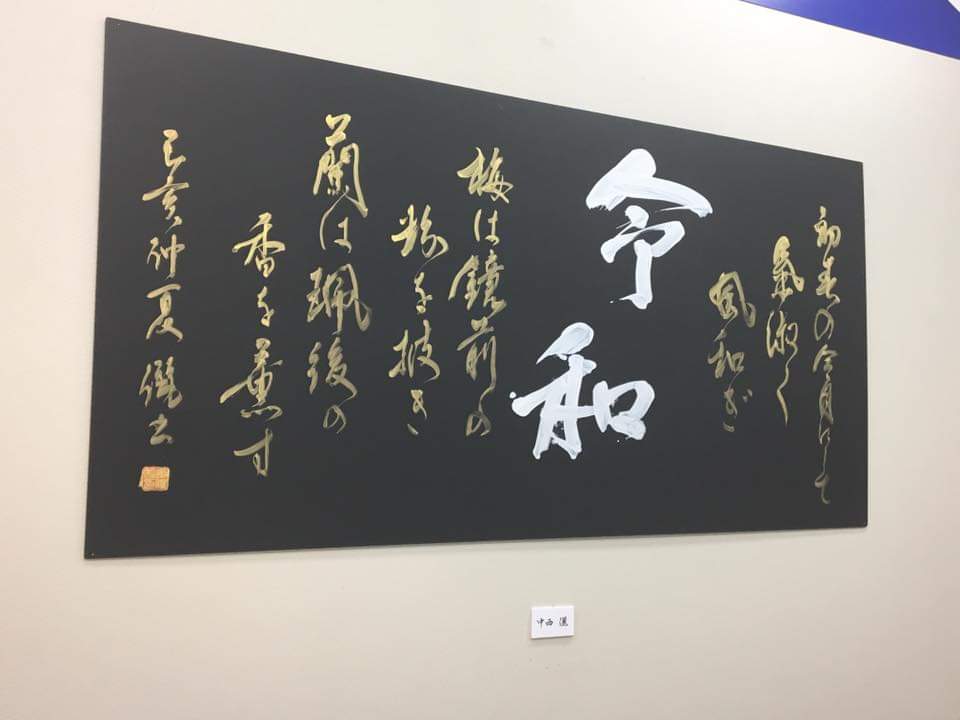 初春の令月にして
氣淑く
風和ぎ
令和
梅は鏡前の
粉を披き
蘭は珮後の
香を薫す
己亥仲夏
中西